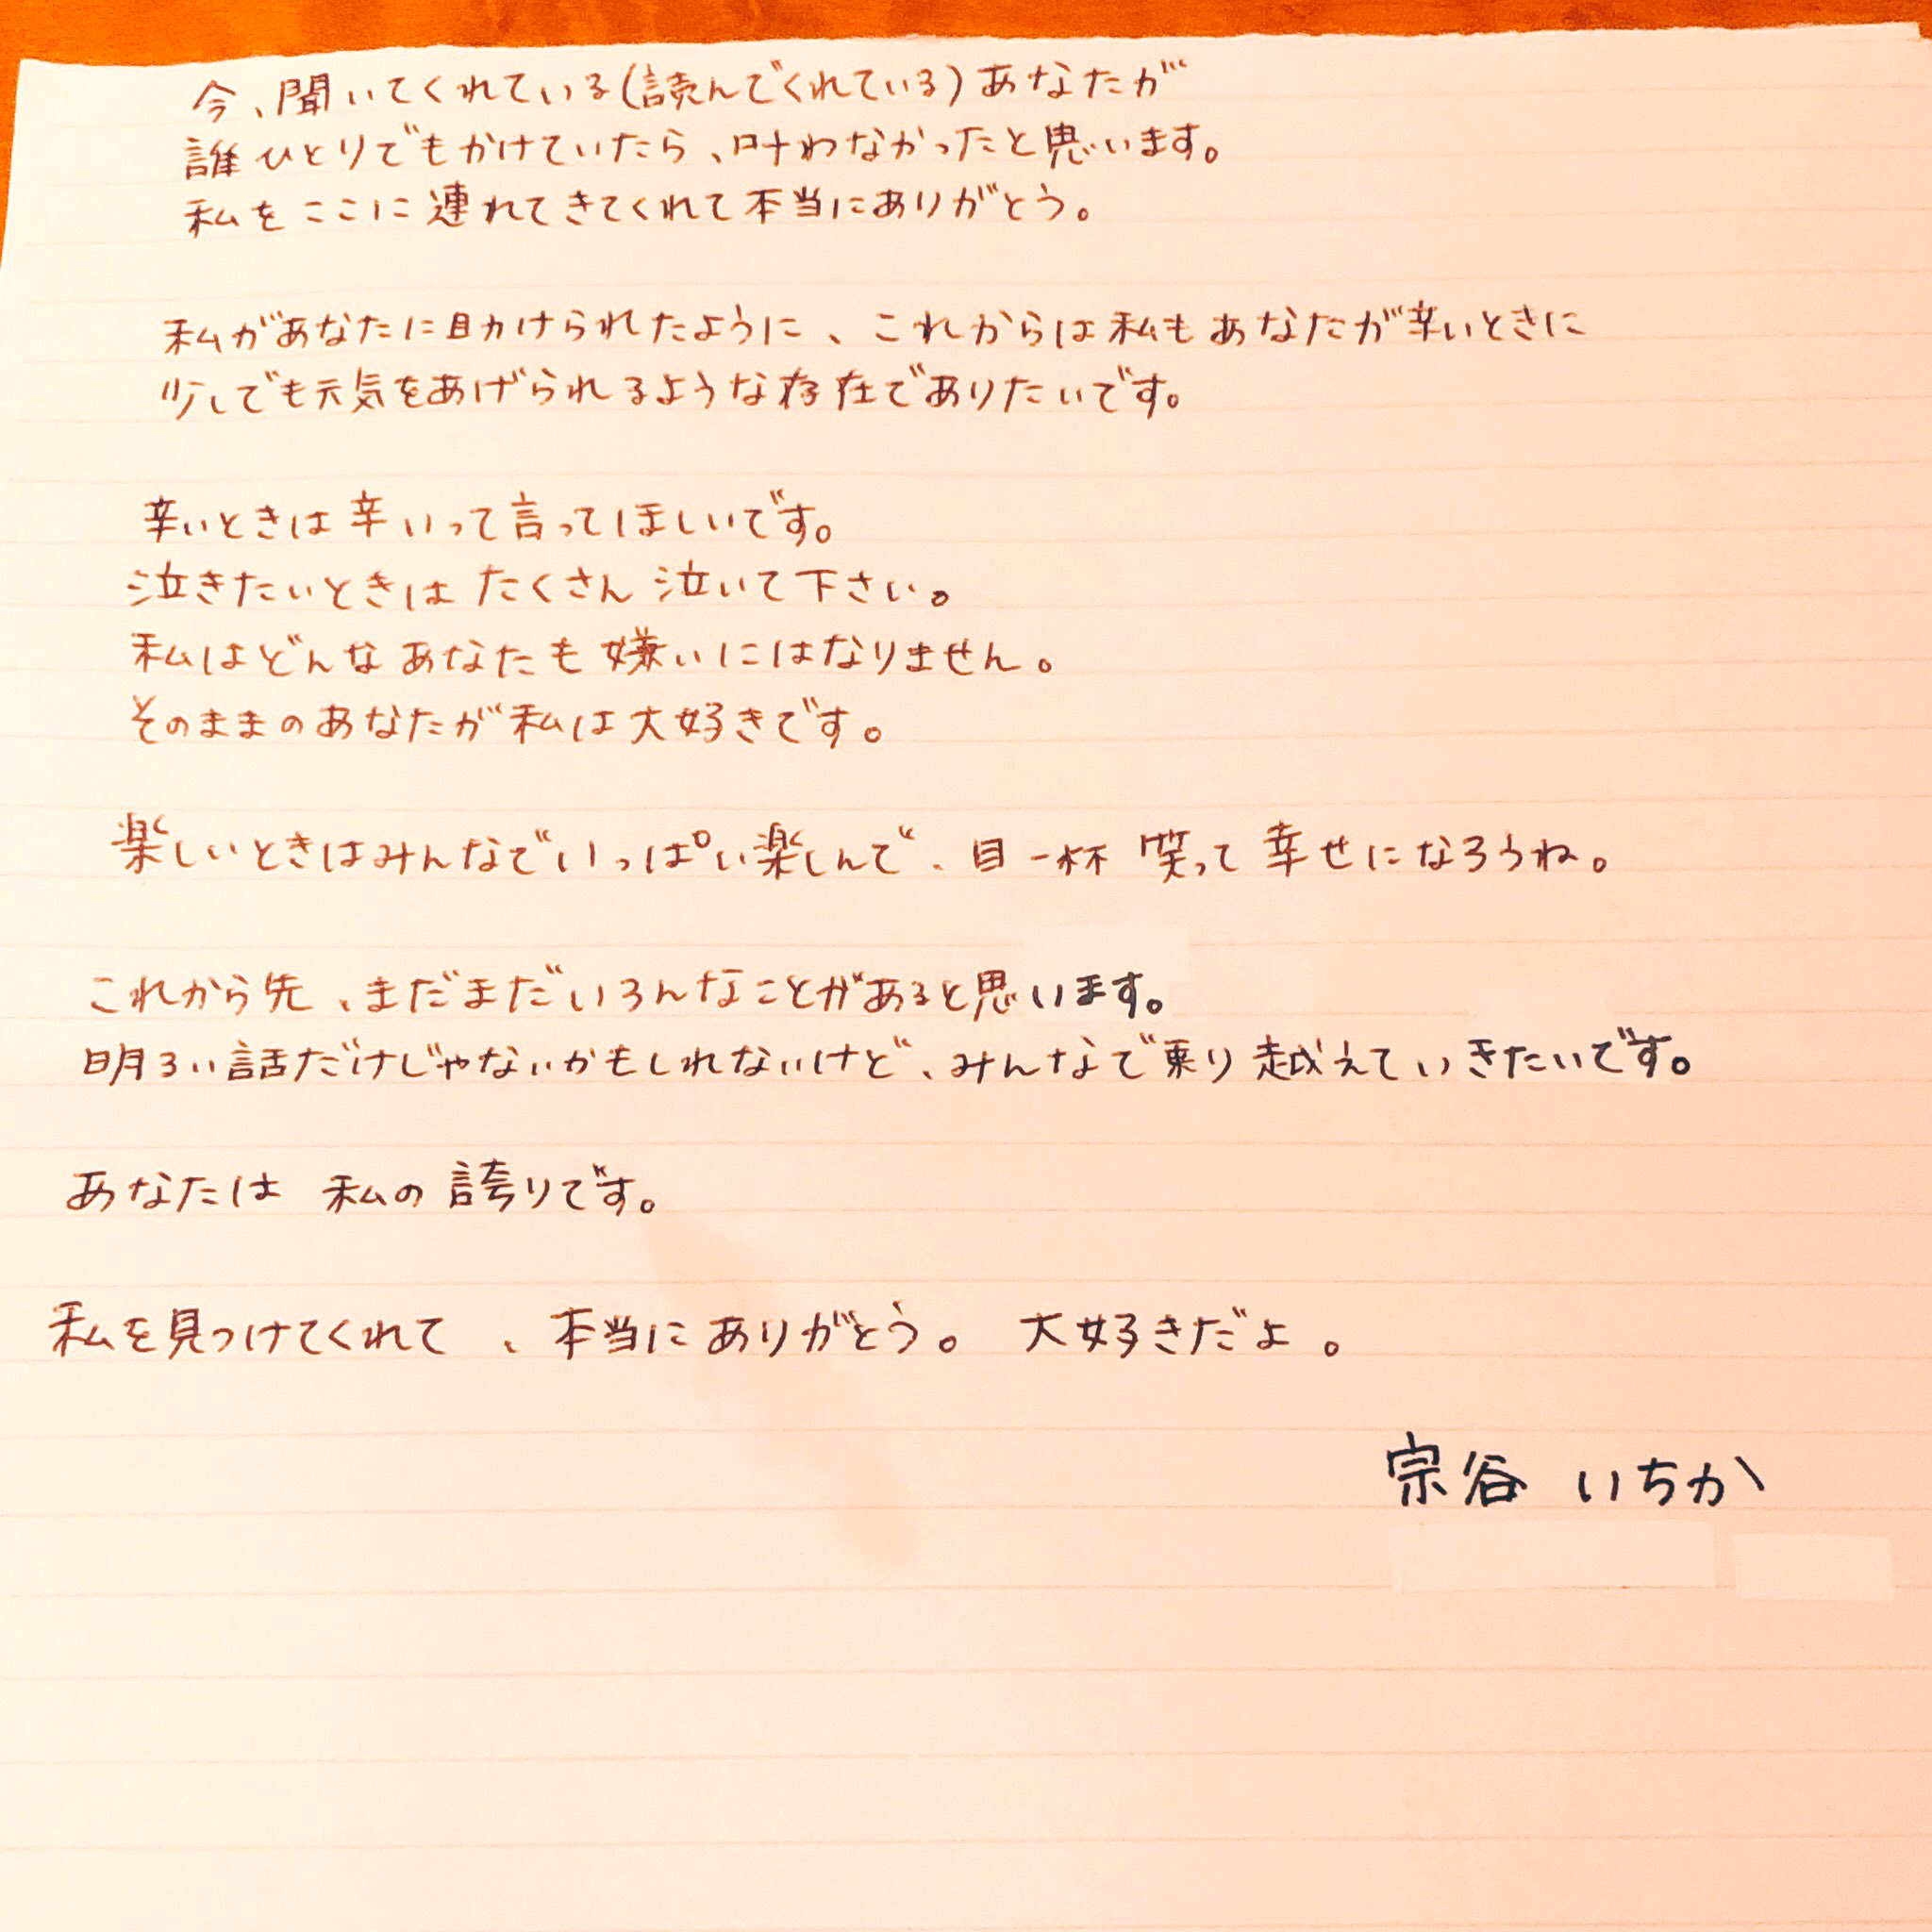 今、聞いてくれている(読んでくれている)あなたが
誰ひとりでもかけていたら、叶わなかったと思います。
私をここに連れてきてくれて本当にありがとう。
私があなたに助けられたように、これからは私もあなたが辛いときに
少しでも元気をあげられるような存在でありたいです。
辛いときは辛いって言ってほしいです。
泣きたいときはたくさん泣いて下さい。
私はどんなあなたも嫌いにはなりません。
そのままのあなたが私は大好きです。
楽しいときはみんなでいっぱい楽しんで、目一杯笑って幸せになろうね。
これから先、まだまだいろんなことがあると思います。
明るい話だけじゃないかもしれないけど、みんなで乗り越えていきたいです。
あなたは 私の誇りです。
私を見つけてくれて、本当にありがとう。 大好きだよ。
宗谷 いちか